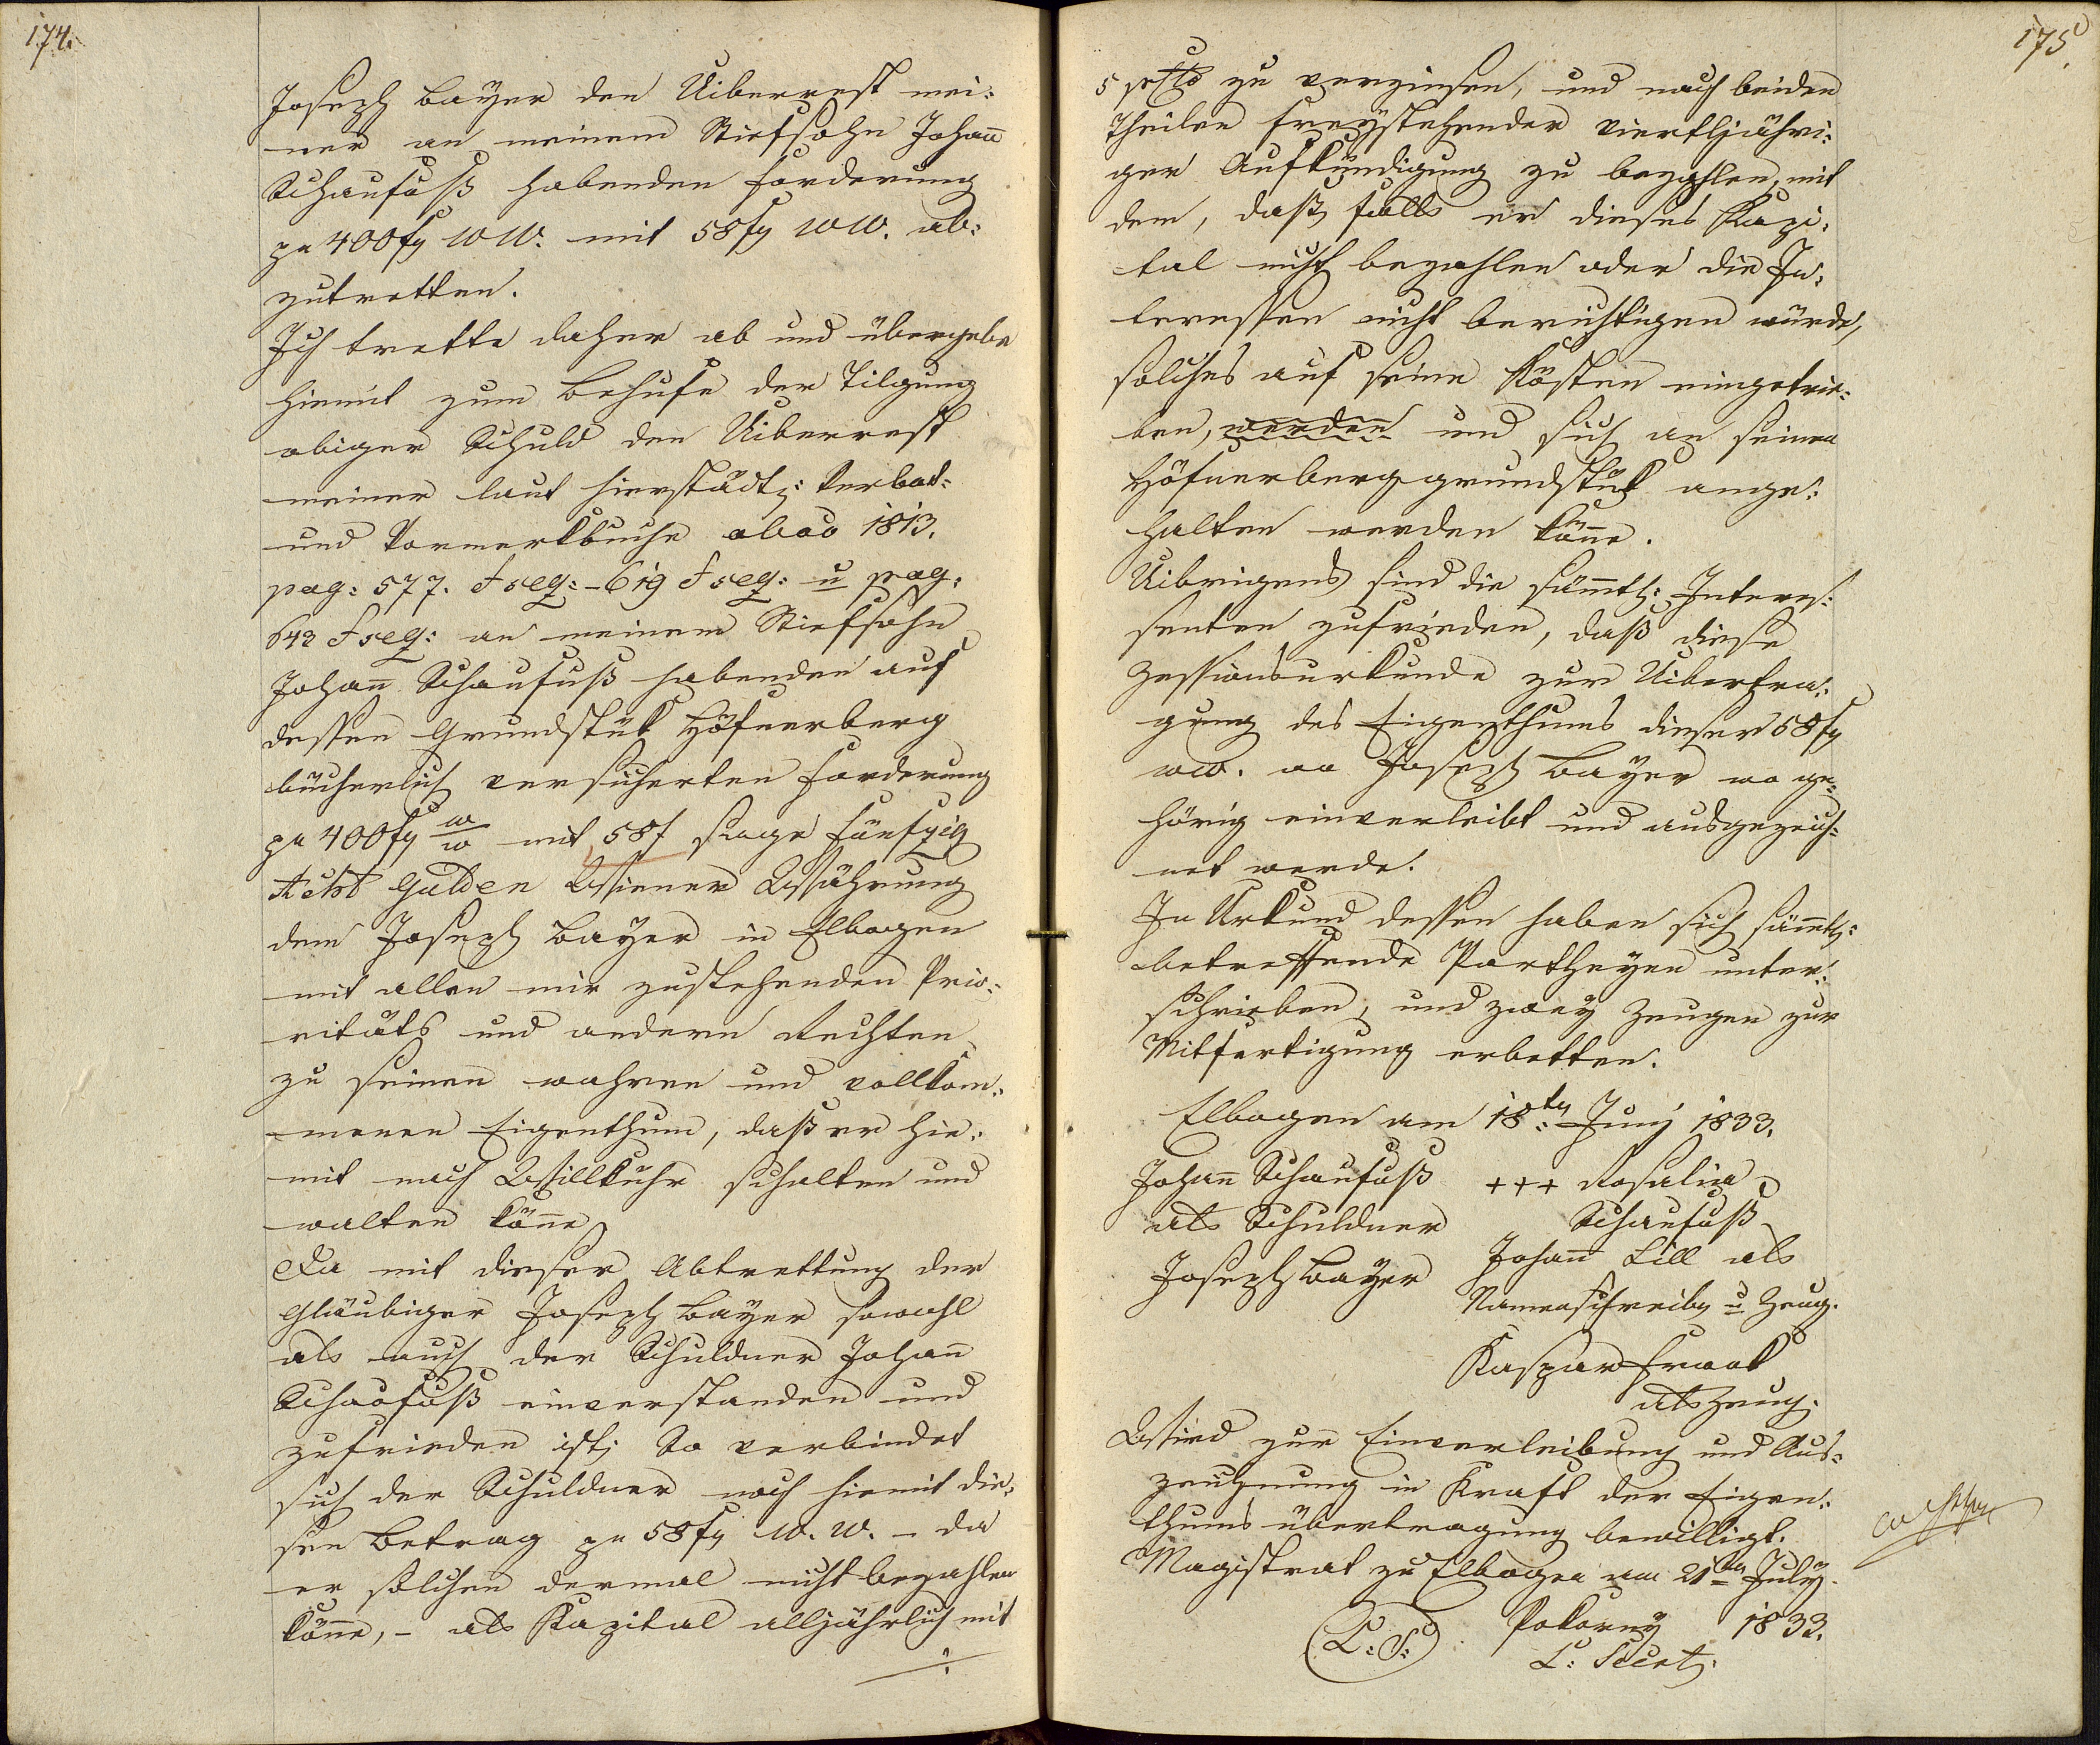 174.
Joseph Bayer den Uiberrest mei:
ner an meinem Stiefsohn Johañ
Schaufuß habenden Forderung
pr 400 fg WW. mit 58 fg WW. ab:
zutretten.
Ich trette daher ab und übergebe
hiemit zum Behufe der Tilgung
obiger Schuld den Uiberrest
meiner laut hierstädtg: Verbot:
und Vormerkbuche abao 1813.
pag: 577. & seq: - 619 & seq: u pag.
643 & seq: an meinem Stiefsohn
Johañ Schaufuß habenden auf
dessen Grundstük Höfnerberg
bücherlich versicherten Forderung
pr 400 fg w/w mit 58 f sage Fünfzig
Acht Gulden Wiener Währung
dem Joseph Bayer in Elbogen
mit allen mir zustehenden Prio:
ritäts und andern Rechten
zu seinen wahren und vollkom:
menen Eigenthum, daß er hie:
mit nach Willkuhr schalten und
walten köñe.
Da mit dieser Abtrettung der
Gläubiger Joseph Bayer sowohl
als auch der Schuldner Johañ
Schaufuß einverstanden und
zufrieden ist; So verbindet
sich der Schuldner noch hiemit die:
sen Betrag pr 58 fg W. W. - da
er solchen dermal nicht bezahlen
köñe, - als Kapital alljährlich mit
./.
175.
5 pCto zu verzinsen, und nach beiden
Theilen freystehender viertljähri:
ger Aufkündigung zu bezahlen, mit
dem, daß, falls er dieses Kapi:
tal nicht bezahlen oder die In:
teressen nicht berichtigen würde,
solches auf seine Kösten eingetrie:
ben, werden und sich an seinen
Höfnerberggrundstük ange:
halten werden köñe.
Uibrigens sind die säm̃tl: Interes:
senten zufrieden, daß diese
Zessionsurkunde zur Uibertra:
gung des Eigenthums dieser 58 fg
ww. an Joseph Bayer wo ge:
hörig einverleibt und ausgezeich:
net werde.
In Urkund dessen haben sich säm̃tl:
betreffende Partheyen unter:
schrieben, und zwey Zeugen zur
Mitfertigung erbetten.
Elbogen am 18:ten Juny 1833.
Johañ Schaufuß +++ Rosalia
als Schuldner Schaufuß
Joseph Bayer Johañ Lill als
Namensschreibr u Zeug.
Kaspar Frank
als Zeug.
Wird zur Einverleibung und Aus:
zeichnung in Kraft der Eigen:
thumsübertragung bewilligt.
Magistrat zu Elbogen am 21ten July
(L: S:) Pokorny 1833.
L: Secrt: